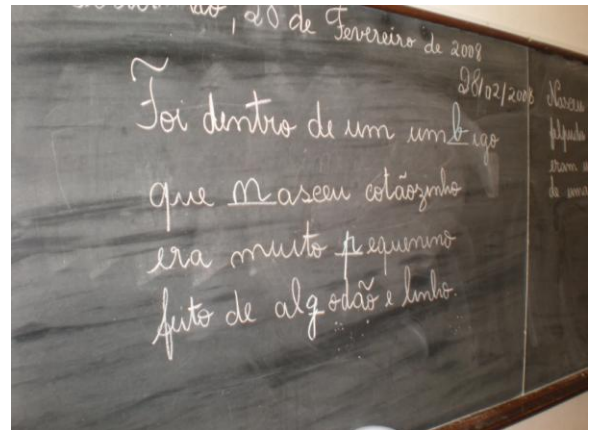 , 20 de Fevereiro de 2008
28/02/2008
Foi dentro de um umbigo
que nasceu cotãozinho
era muito pequenino
feito de algodão e linho.
Nasceu
felpudo
eram
de uma